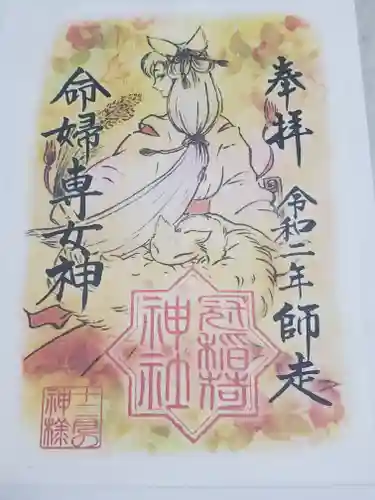 奉拝
令和二年師走
命婦専女神
冠稲荷
神社
神様